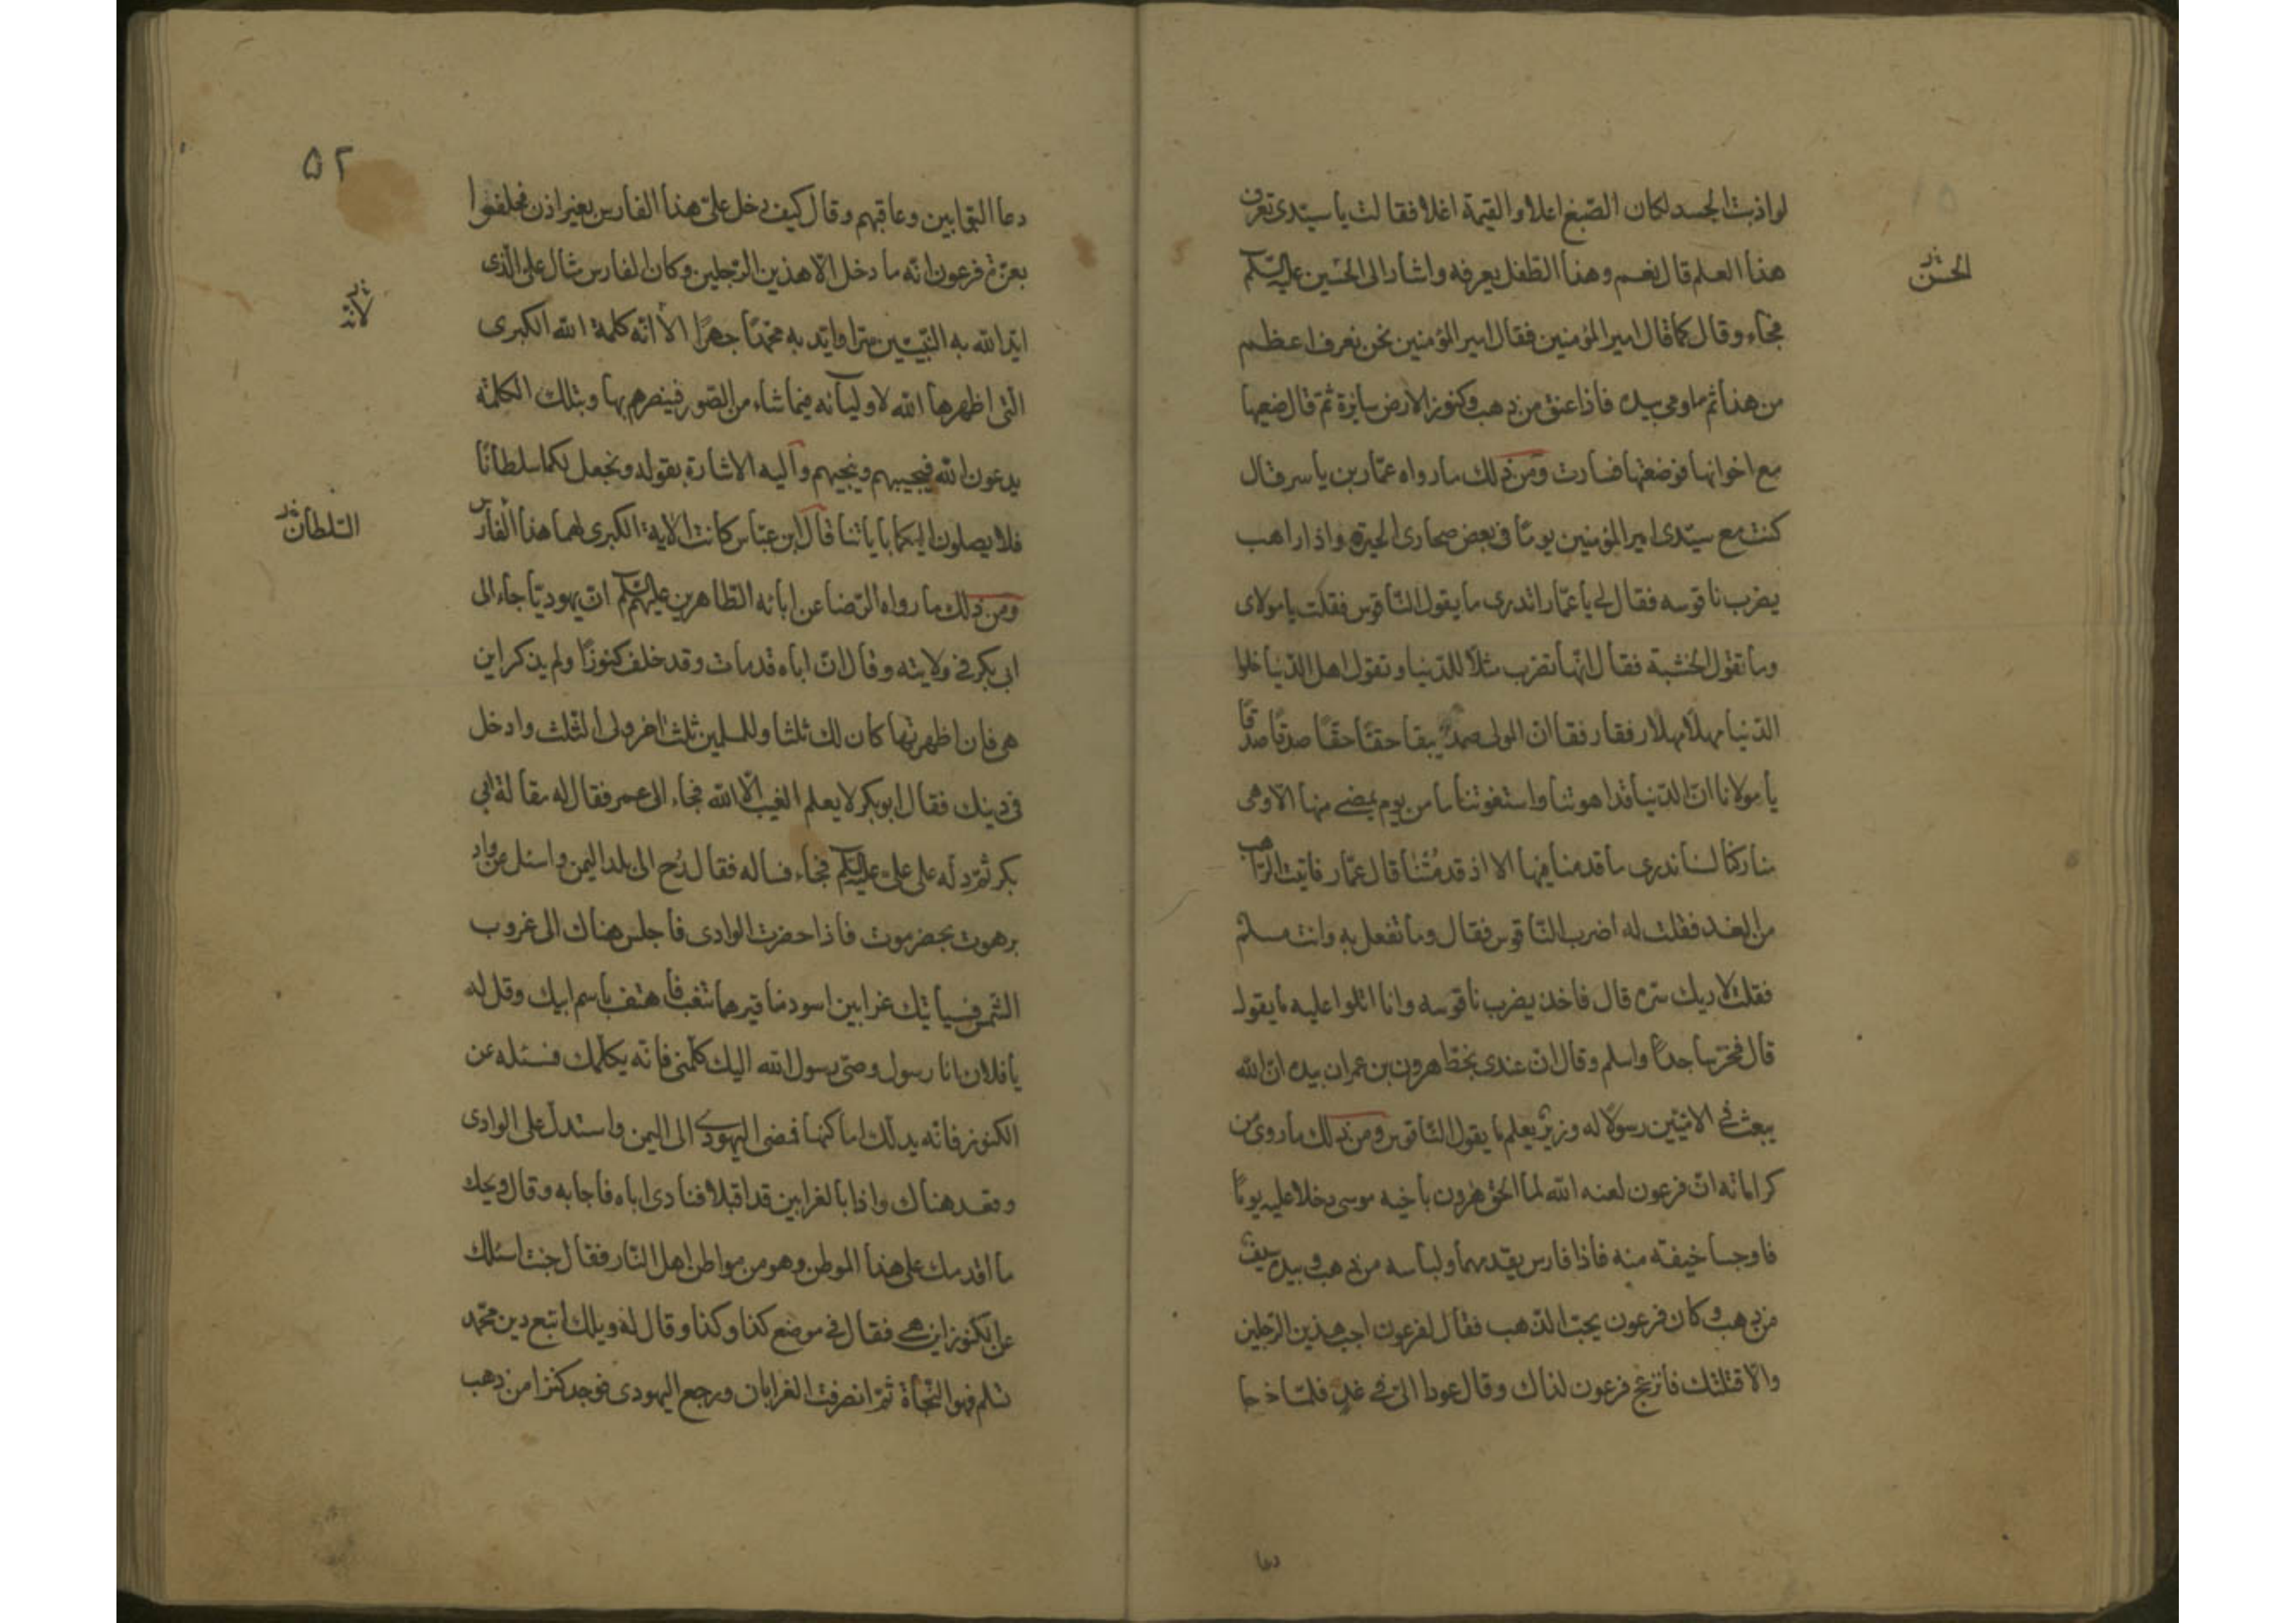 لو اذبت الجسد لكان الصّبغ اعلا و القيمة اغلا فقالت يا سيّدى تعرف
هذا العلم قال نعم وهذا الطفل يعرفه واشار الى الحسين عليه السّلم
الحسن
فجاء وقال كما قال امير المؤمنين فقال امير المؤمنين نحن نعرف اعظم
من هذا ثم اومى بيده فاذا عنق من ذهب وكنوز الارض سايرة ثمّ قال ضعيها
مع اخوانها فوضعتها فسارت ومن ذلك ما رواه عمّار بن ياسر قال
كنت مع سيّدى امير المؤمنين يومًا فى بعض صحارى الحيرة واذا راهب
يضرب ناقوسه فقال لى يا عمّار اتدرى ما يقول النّاقوس فقلت يا مولاى
وما تقول الخشبة فقال انّها تضرب مثلاً للدّنيا وتقول اهل الدّنيا خلوا
الدّنيا مهلًا مهلا رفقا رفقا انّ المولى صمدٌ يبقا حقًّا حقًّا صدقًا صدقًا
يا مولانا انّ الدّنيا قد اهوتنا واستغوتنا ما من يوم يمضى منها الّا وهى
منا ركنًا لسنا ندرى ما قدمنا فيها الا اذ قد مُتنا قال عمّار فاتيت الرّاهب
من الغد فقلت له اضرب النّاقوس فقال وما تفعل به وانت مسلم
فقلت لاريك سرّه قال فاخذ يضرب ناقوسه وانا اتلوا عليه ما يقول
قال فخرّ ساجدًا واسلم وقال انّ عندى بخطّ هرون بن عمران بيده انّ الله
يبعث فى الاميّين رسولًا له وزيرٌ يعلم ما يقول النّاقوس ومن ذلك ما روى من
كراماته انّ فرعون لعنه الله لما الحق هرون باخيه موسى دخلا عليه يومًا
فاوجسا خيفته منه فاذا فارس يقدمهما ولباسه من ذهب وبيده سيف
من ذهب وكان فرعون يحبّ الذّهب فقال لفرعون اجب هذين الرّجلين
والّا قتلتك فانزعج فرعون لذلك وقال عودا الىّ فى غدٍ فلمّا خرجا
دعا
۵۲
دعا البوّابين وعاقبهم وقال كيف دخل علىّ هذا الفارس بغير اذن فحلفوا
بعزّة فرعون انّه ما دخل الّا هذين الرّجلين وكان الفارس مثال على الّذى
ايّد الله به النّبيّين سرّا وايّد به محمّدًا جهرًا الا انّه كلمة الله الكبرى
لانّه
الّتى اظهرها الله لاوليائه فيما شاء من الصّور فينصرهم بها وبتلك الكلمة
يدعون الله فيجيبهم وينجيهم واليه الاشارة بقوله ونجعل لكما سلطانًا
فلا يصلون اليكما باياتنا قال ابن عبّاس كانت الاية الكبرى لهما هذا الفارس
السّلطان
ومن ذلك ما رواه الرّضا عن ابائه الطّاهرين عليهم السّلم انّ يهوديّا جاء الى
ابى بكر فى ولايته وقال انّ اباه قد مات وقد خلف كنوزًا ولم يذكر اين
هى فان اظهرتها كان لك ثلثا وللمسلمين ثلث اخر ولى الثّلث وادخل
فى دينك فقال ابو بكر لا يعلم الغيب الّا الله فجاء الى عمر فقال له مقالة ابى
بكر ثمّ دلّه على علىّ عليه السّلم فجاء فساله فقال رُح الى بلد اليمن واسئل عن واد
برهوت بحضرموت فاذا حضرت الوادى فاجلس هناك الى غروب
الشّمس فسياتيك غرابين اسود مناقيرهما تنغب فاهتف باسم ابيك وقل له
يا فلان انا رسول وصىّ رسول الله اليك كلّمنى فانّه يكلّمك فسئله عن
الكنوز فانّه يدلّك اماكنها فمضى اليهودى الى اليمن واستدلّ على الوادى
وقعد هناك واذا بالغرابين قد اقبلا فنادى اباه فاجابه وقال ويحك
ما اقدمك على هذا الموطن وهو من مواطن اهل النّار فقال جئت اسئلك
عن الكنوز اين هى فقال فى موضع كذا وكذا وقال له ويلك اتبع دين محمّد
تسلم فهو النّجاة ثمّ انصرفت الغرابان ورجع اليهودى فوجد كنزا من ذهب